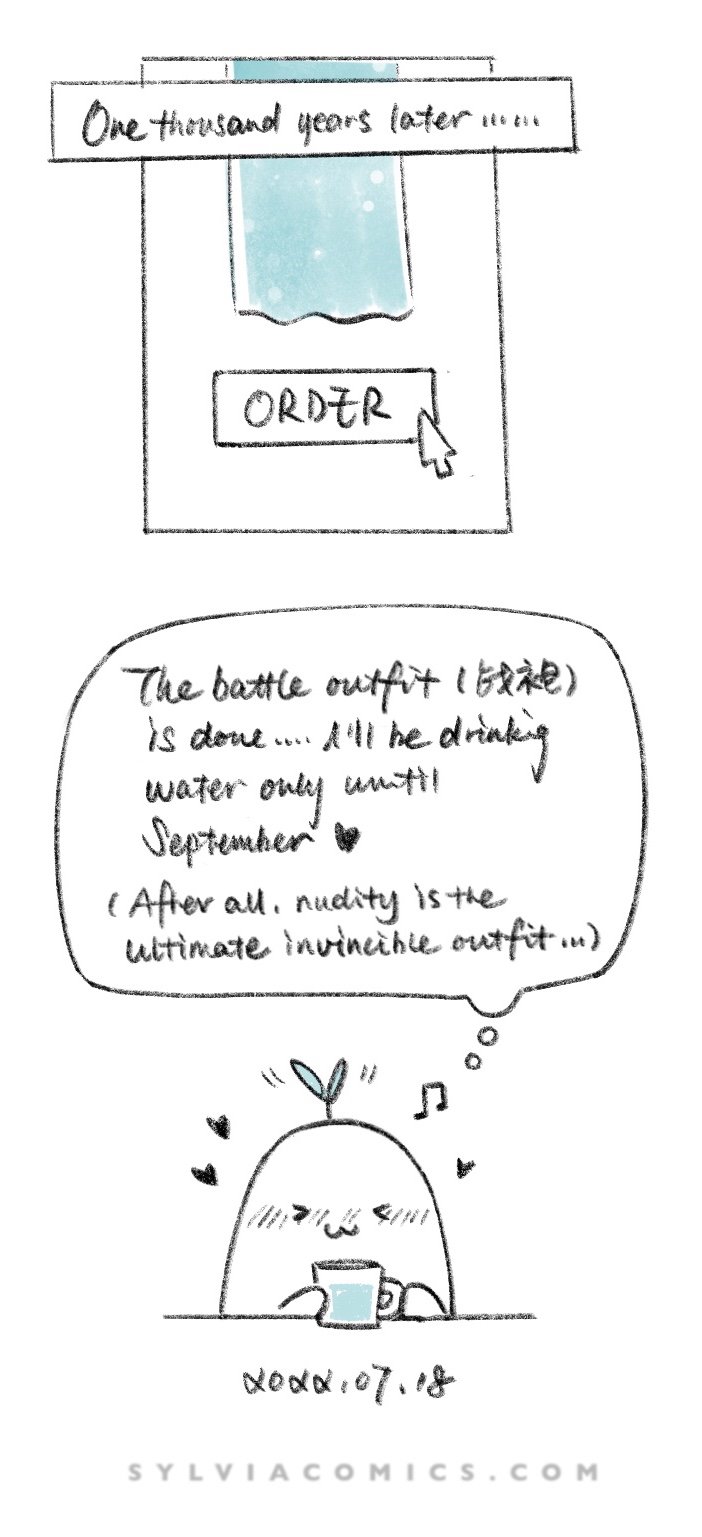 One thousand years later ......
ORDER
The battle outfit (战袍)
is done.... I'll be drinking
water only until
September ♥
(After all, nudity is the
ultimate invincible outfit...)
2022.07.18
SYLVIACOMICS.COM